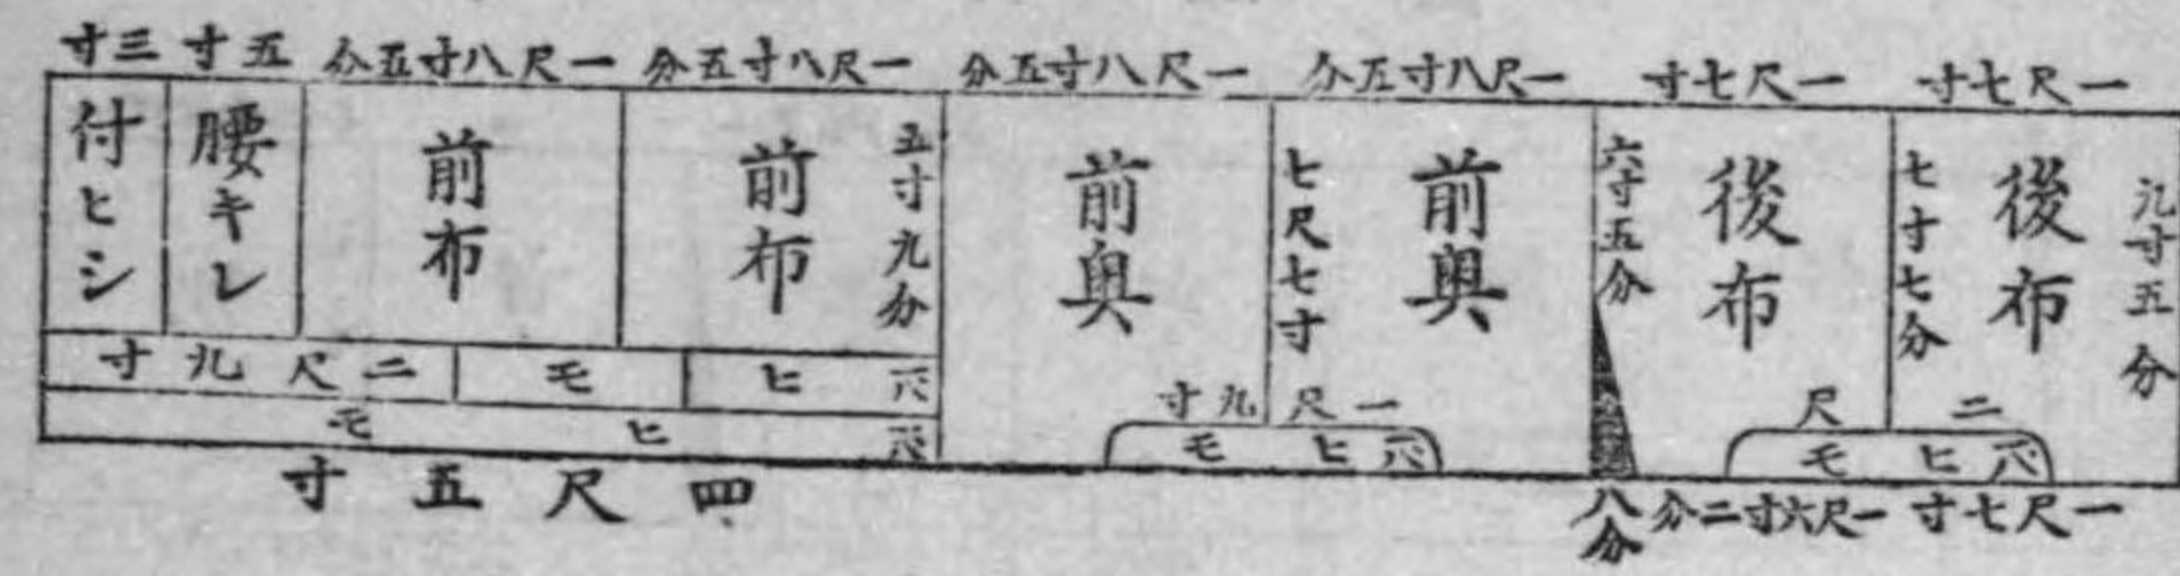 一尺七寸
一尺七寸
一尺八寸五分
一尺八寸五分
一尺八寸五分
一尺八寸五分
五寸
三寸
九寸五分
後布
七寸七分
後布
六寸五分
前奥
七尺七寸
前奥
五寸九分
前布
前布
腰キレ
付ヒシ
二尺
ヒモ
一尺九寸
ヒモ
ヒモ
二尺九寸
ヒモ
一尺七寸
一尺六寸二分
八分
四尺五寸